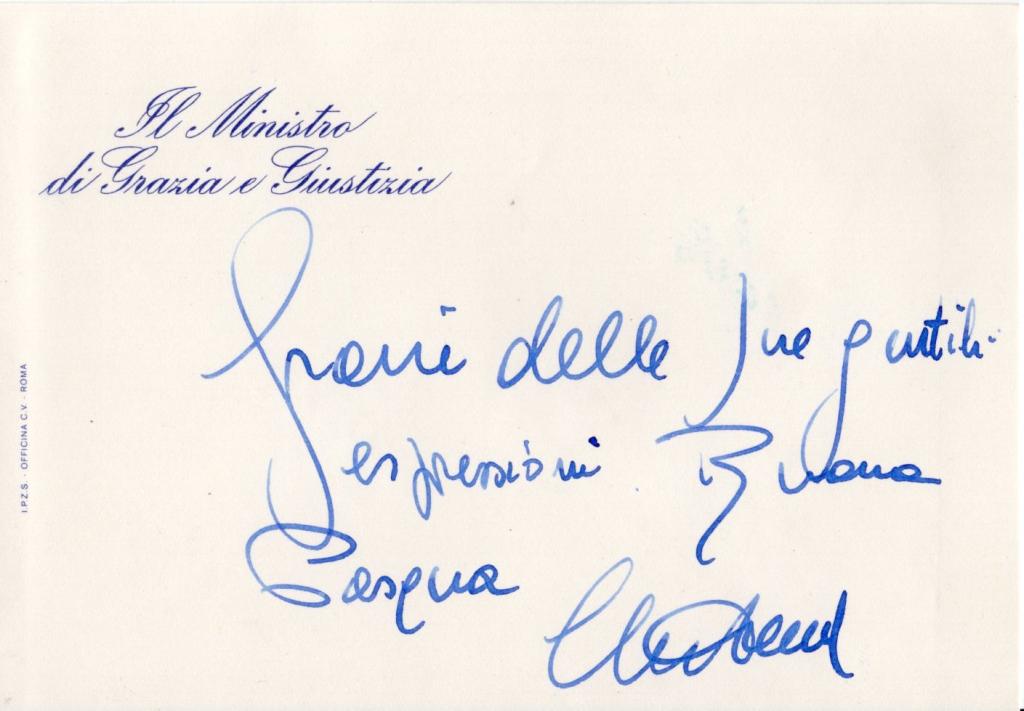 Il Ministro
di Grazia e Giustizia
Grazie delle Sue gentili
espressioni. Buona
Pasqua
I.P.Z.S. - OFFICINA C.V. - ROMA